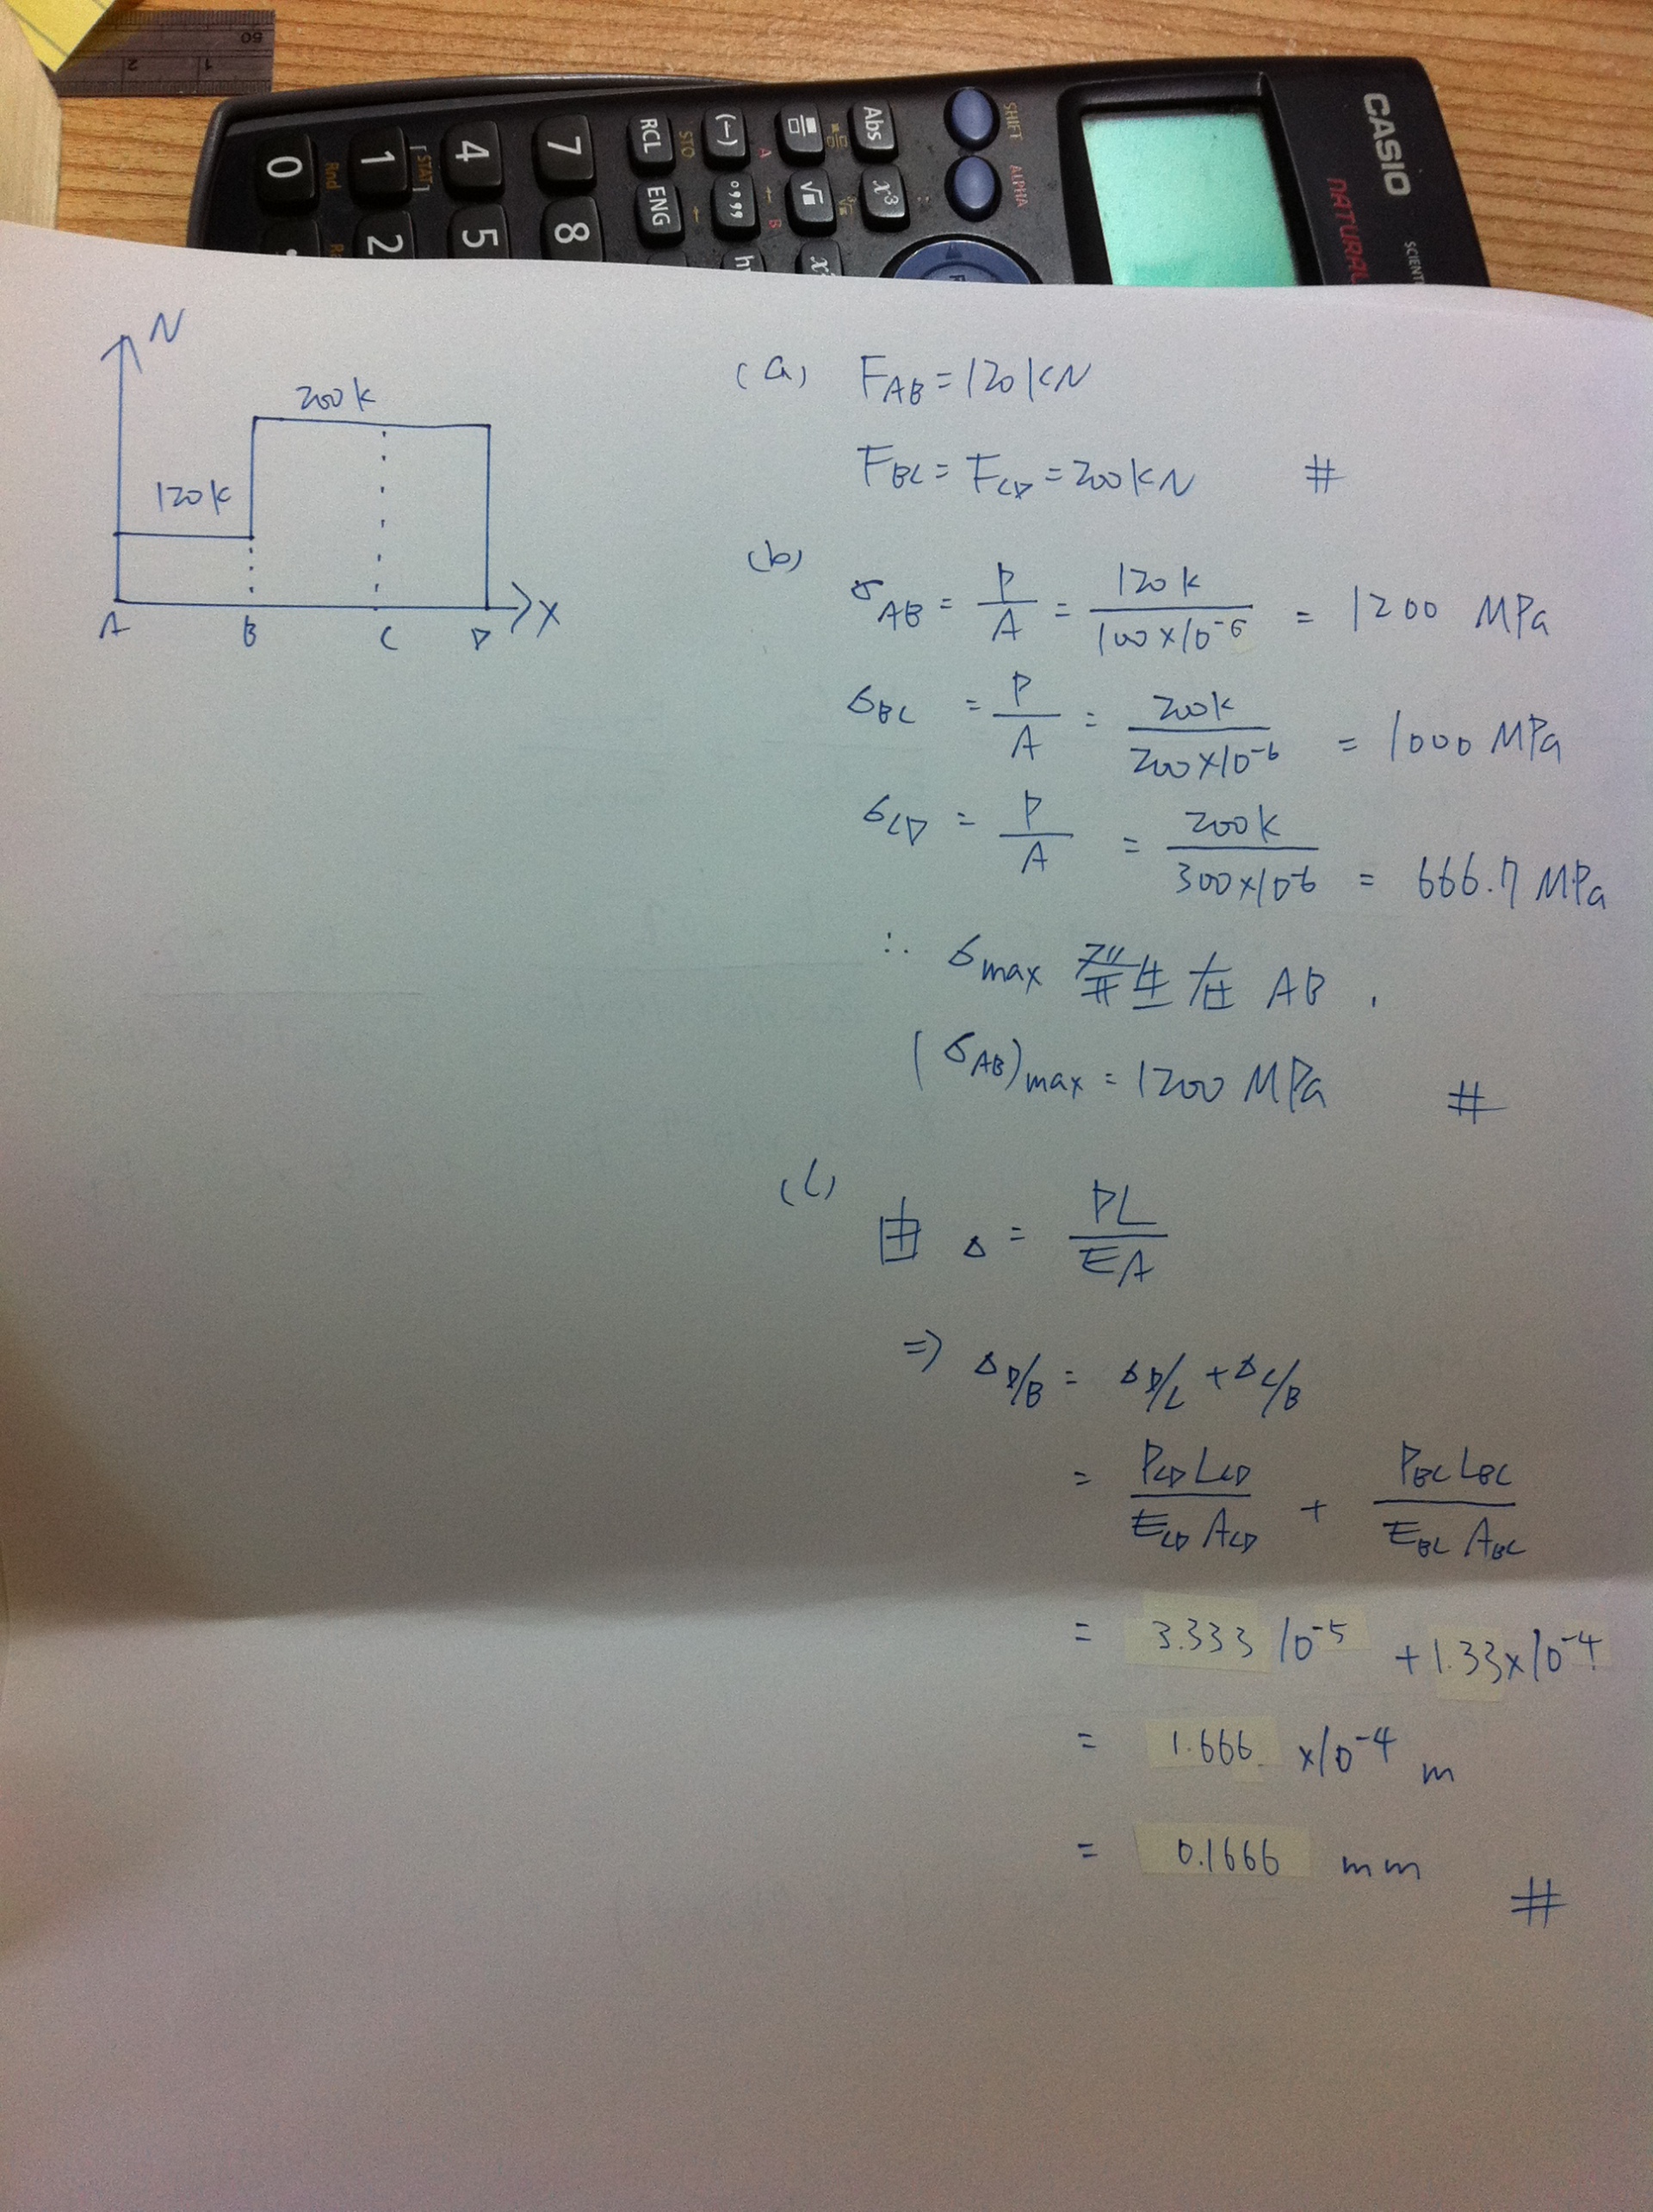 CASIO
NATURAL
SCIENT
SHIFT
ALPHA
Abs
x³
(−)
RCL
STO
ENG
7
8
4
5
1
2
0
[STAT]
Rnd
A
B
50
2
1
N
200k
120k
A B C D X
(a) F_AB = 120 kN
F_BC = F_CD = 200 kN #
(b) σ_AB = P/A = 120k/(100×10⁻⁶) = 1200 MPa
σ_BC = P/A = 200k/(200×10⁻⁶) = 1000 MPa
σ_CD = P/A = 200k/(300×10⁻⁶) = 666.7 MPa
∴ σ_max 發生在 AB .
(σ_AB)_max = 1200 MPa #
(c) 由 Δ = PL/EA
⇒ Δ_D/B = Δ_D/C + Δ_C/B
= P_CD L_CD/(E_CD A_CD) + P_BC L_BC/(E_BC A_BC)
= 3.333 10⁻⁵ + 1.33×10⁻⁴
= 1.666 ×10⁻⁴ m
= 0.1666 mm #